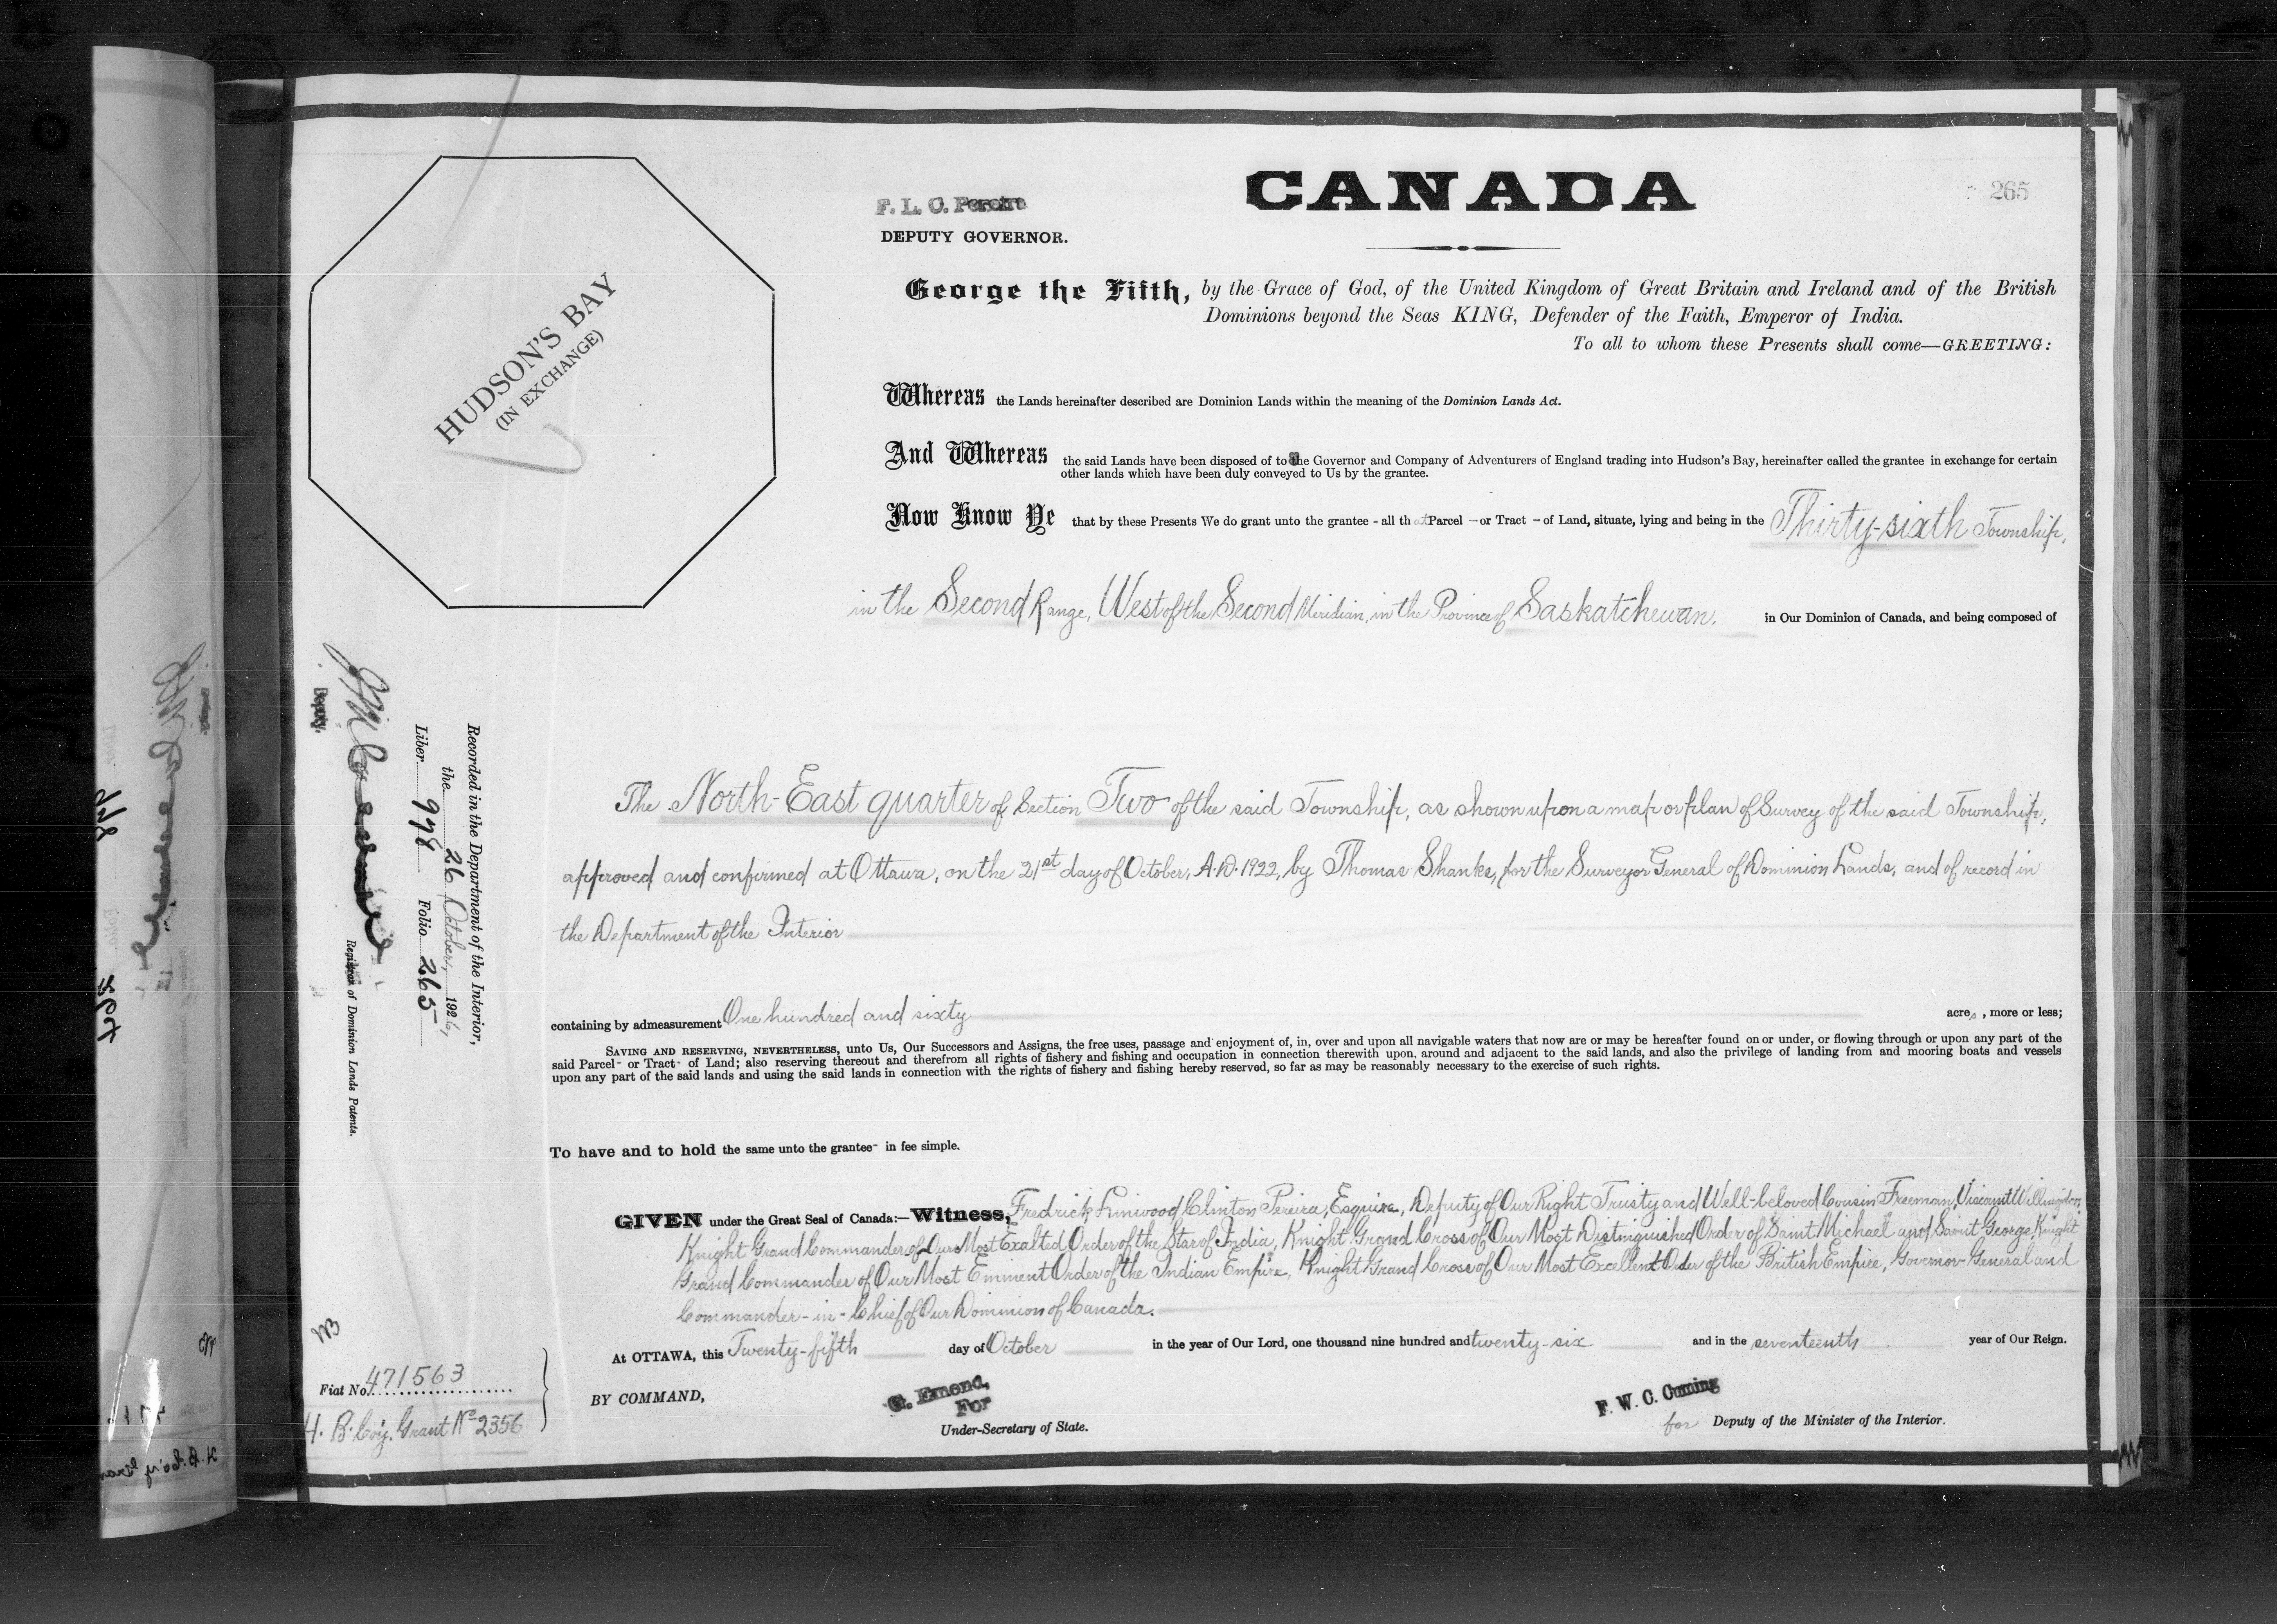 CANADA
265
F. L. C. Pereira
DEPUTY GOVERNOR.
HUDSON'S BAY
(IN EXCHANGE)
George the Fifth, by the Grace of God, of the United Kingdom of Great Britain and Ireland and of the British
Dominions beyond the Seas KING, Defender of the Faith, Emperor of India.
To all to whom these Presents shall come—GREETING:
Whereas the Lands hereinafter described are Dominion Lands within the meaning of the Dominion Lands Act.
And Whereas the said Lands have been disposed of to the Governor and Company of Adventurers of England trading into Hudson's Bay, hereinafter called the grantee in exchange for certain
other lands which have been duly conveyed to Us by the grantee.
Now Know Ye that by these Presents We do grant unto the grantee - all that Parcel - or Tract - of Land, situate, lying and being in the Thirty-sixth Township,
in the Second Range, West of the Second Meridian, in the Province of Saskatchewan. in Our Dominion of Canada, and being composed of
The North-East quarter of Section Two of the said Township, as shown upon a map or plan of Survey of the said Township,
approved and confirmed at Ottawa, on the 21st day of October, A.D. 1922, by Thomas Shanks, for the Surveyor General of Dominion Lands, and of record in
the Department of the Interior
containing by admeasurement One hundred and sixty acres, more or less;
SAVING AND RESERVING, NEVERTHELESS, unto Us, Our Successors and Assigns, the free uses, passage and enjoyment of, in, over and upon all navigable waters that now are or may be hereafter found on or under, or flowing through or upon any part of the
said Parcel- or Tract- of Land; also reserving thereout and therefrom all rights of fishery and fishing and occupation in connection therewith upon, around and adjacent to the said lands, and also the privilege of landing from and mooring boats and vessels
upon any part of the said lands and using the said lands in connection with the rights of fishery and fishing hereby reserved, so far as may be reasonably necessary to the exercise of such rights.
To have and to hold the same unto the grantee- in fee simple.
GIVEN under the Great Seal of Canada:—Witness, Fredrick Linwood Clinton Pereira, Esquire, Deputy of Our Right Trusty and Well-beloved Cousin Freeman, Viscount Willingdon,
Knight Grand Commander of Our Most Exalted Order of the Star of India, Knight Grand Cross of Our Most Distinguished Order of Saint Michael and Saint George, Knight
Grand Commander of Our Most Eminent Order of the Indian Empire, Knight Grand Cross of Our Most Excellent Order of the British Empire, Governor-General and
Commander-in-Chief of Our Dominion of Canada.
At OTTAWA, this Twenty-fifth day of October in the year of Our Lord, one thousand nine hundred and twenty-six and in the seventeenth year of Our Reign.
BY COMMAND,
G. Emond,
For
Under-Secretary of State.
F. W. C. Cuming
for Deputy of the Minister of the Interior.
Recorded in the Department of the Interior,
the 26 October, 1926,
Liber. 998 Folio 265
Deputy.
Registrar of Dominion Lands Patents.
Fiat No. 471563
H. B. Coy. Grant No 2356